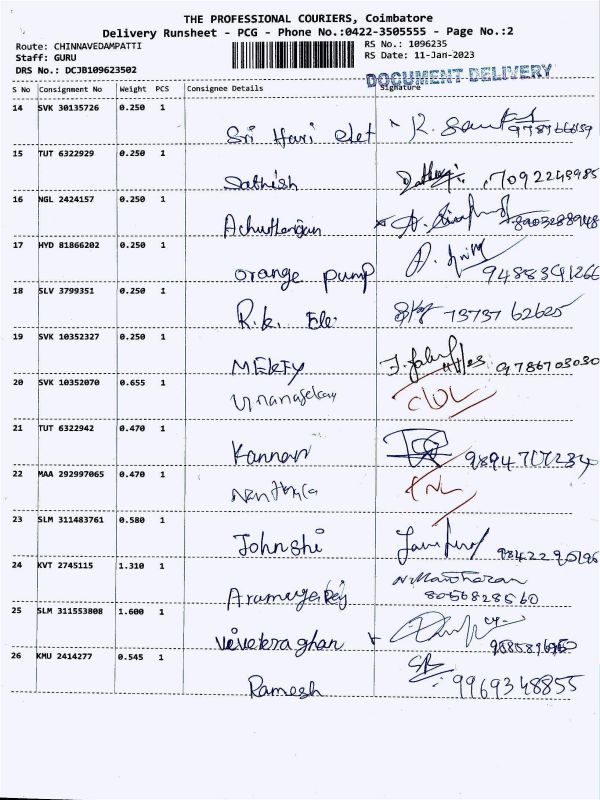 THE PROFESSIONAL COURIERS, Coimbatore
Delivery Runsheet - PCG - Phone No.:0422-3505555 - Page No.:2
Route: CHINNAVEDAMPATTI
Staff: GURU
DRS No.: DCJB109623502
RS No.: 1096235
RS Date: 11-Jan-2023
DOCUMENT DELIVERY
S No Consignment No Weight PCS Consignee Details Signature
14 SVK 30135726 0.250 1
Sri Hari elet
15 TUT 6322929 0.250 1
Sathish 7092248985
16 NGL 2424157 0.250 1
17 HYD 81866202 0.250 1
orange pump 9488391266
18 SLV 3799351 0.250 1
R.k. Ele. 73737 62625
19 SVK 10352327 0.250 1
9786703030
20 SVK 10352070 0.655 1
21 TUT 6322942 0.470 1
Kannan
22 MAA 292997065 0.470 1
23 SLM 311483761 0.580 1
Johnshi
24 KVT 2745115 1.310 1
N. Manoharan
8056828560
25 SLM 311553808 1.600 1
26 KMU 2414277 0.545 1
Ramesh 9969348855